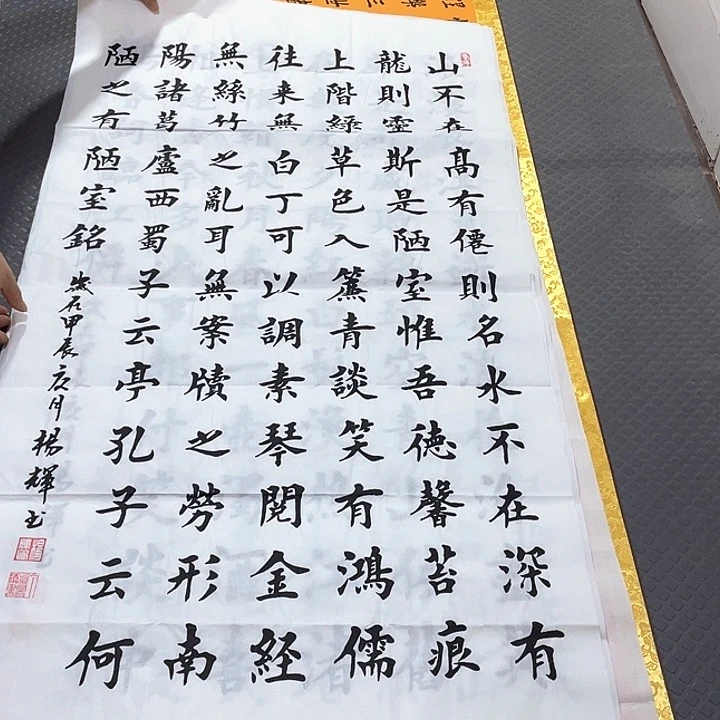 山不在髙有僊則名水不在深有
龍則靈斯是陋室惟吾德馨苔痕
上階綠草色入簾青談笑有鴻儒
往来無白丁可以調素琴閱金経
無絲竹之亂耳無案牘之勞形南
陽諸葛盧西蜀子云亭孔子云何
陋之有陋室銘
歲在甲辰夏月楊輝书